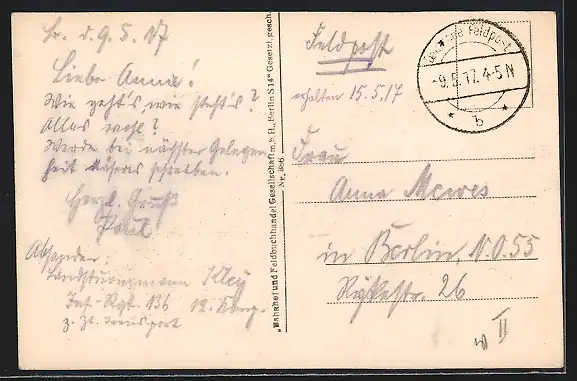 d. 9. 5. 17
Liebe Anna!
Wie geht's wie steht's?
Alles wohl?
Werde bei nächster Gelegen
heit Näheres schreiben.
Herzl. Gruß
Paul
Absender:
Landsturmmann
Inf. Rgt. 136 12. Komp.
z. Zt. Transport
"Bahnhof und Feldbuchhandel Gesellschaft m. b. H., Berlin S 14" Gesetzl. gesch.
Nr. 886.
Feldpost
erhalten 15.5.17
Deutsche Feldpost
-9.5.17. 4-5 N
* b *
Frau
Anna Mewes
in Berlin, N.O. 55
Rykestr. 26
II